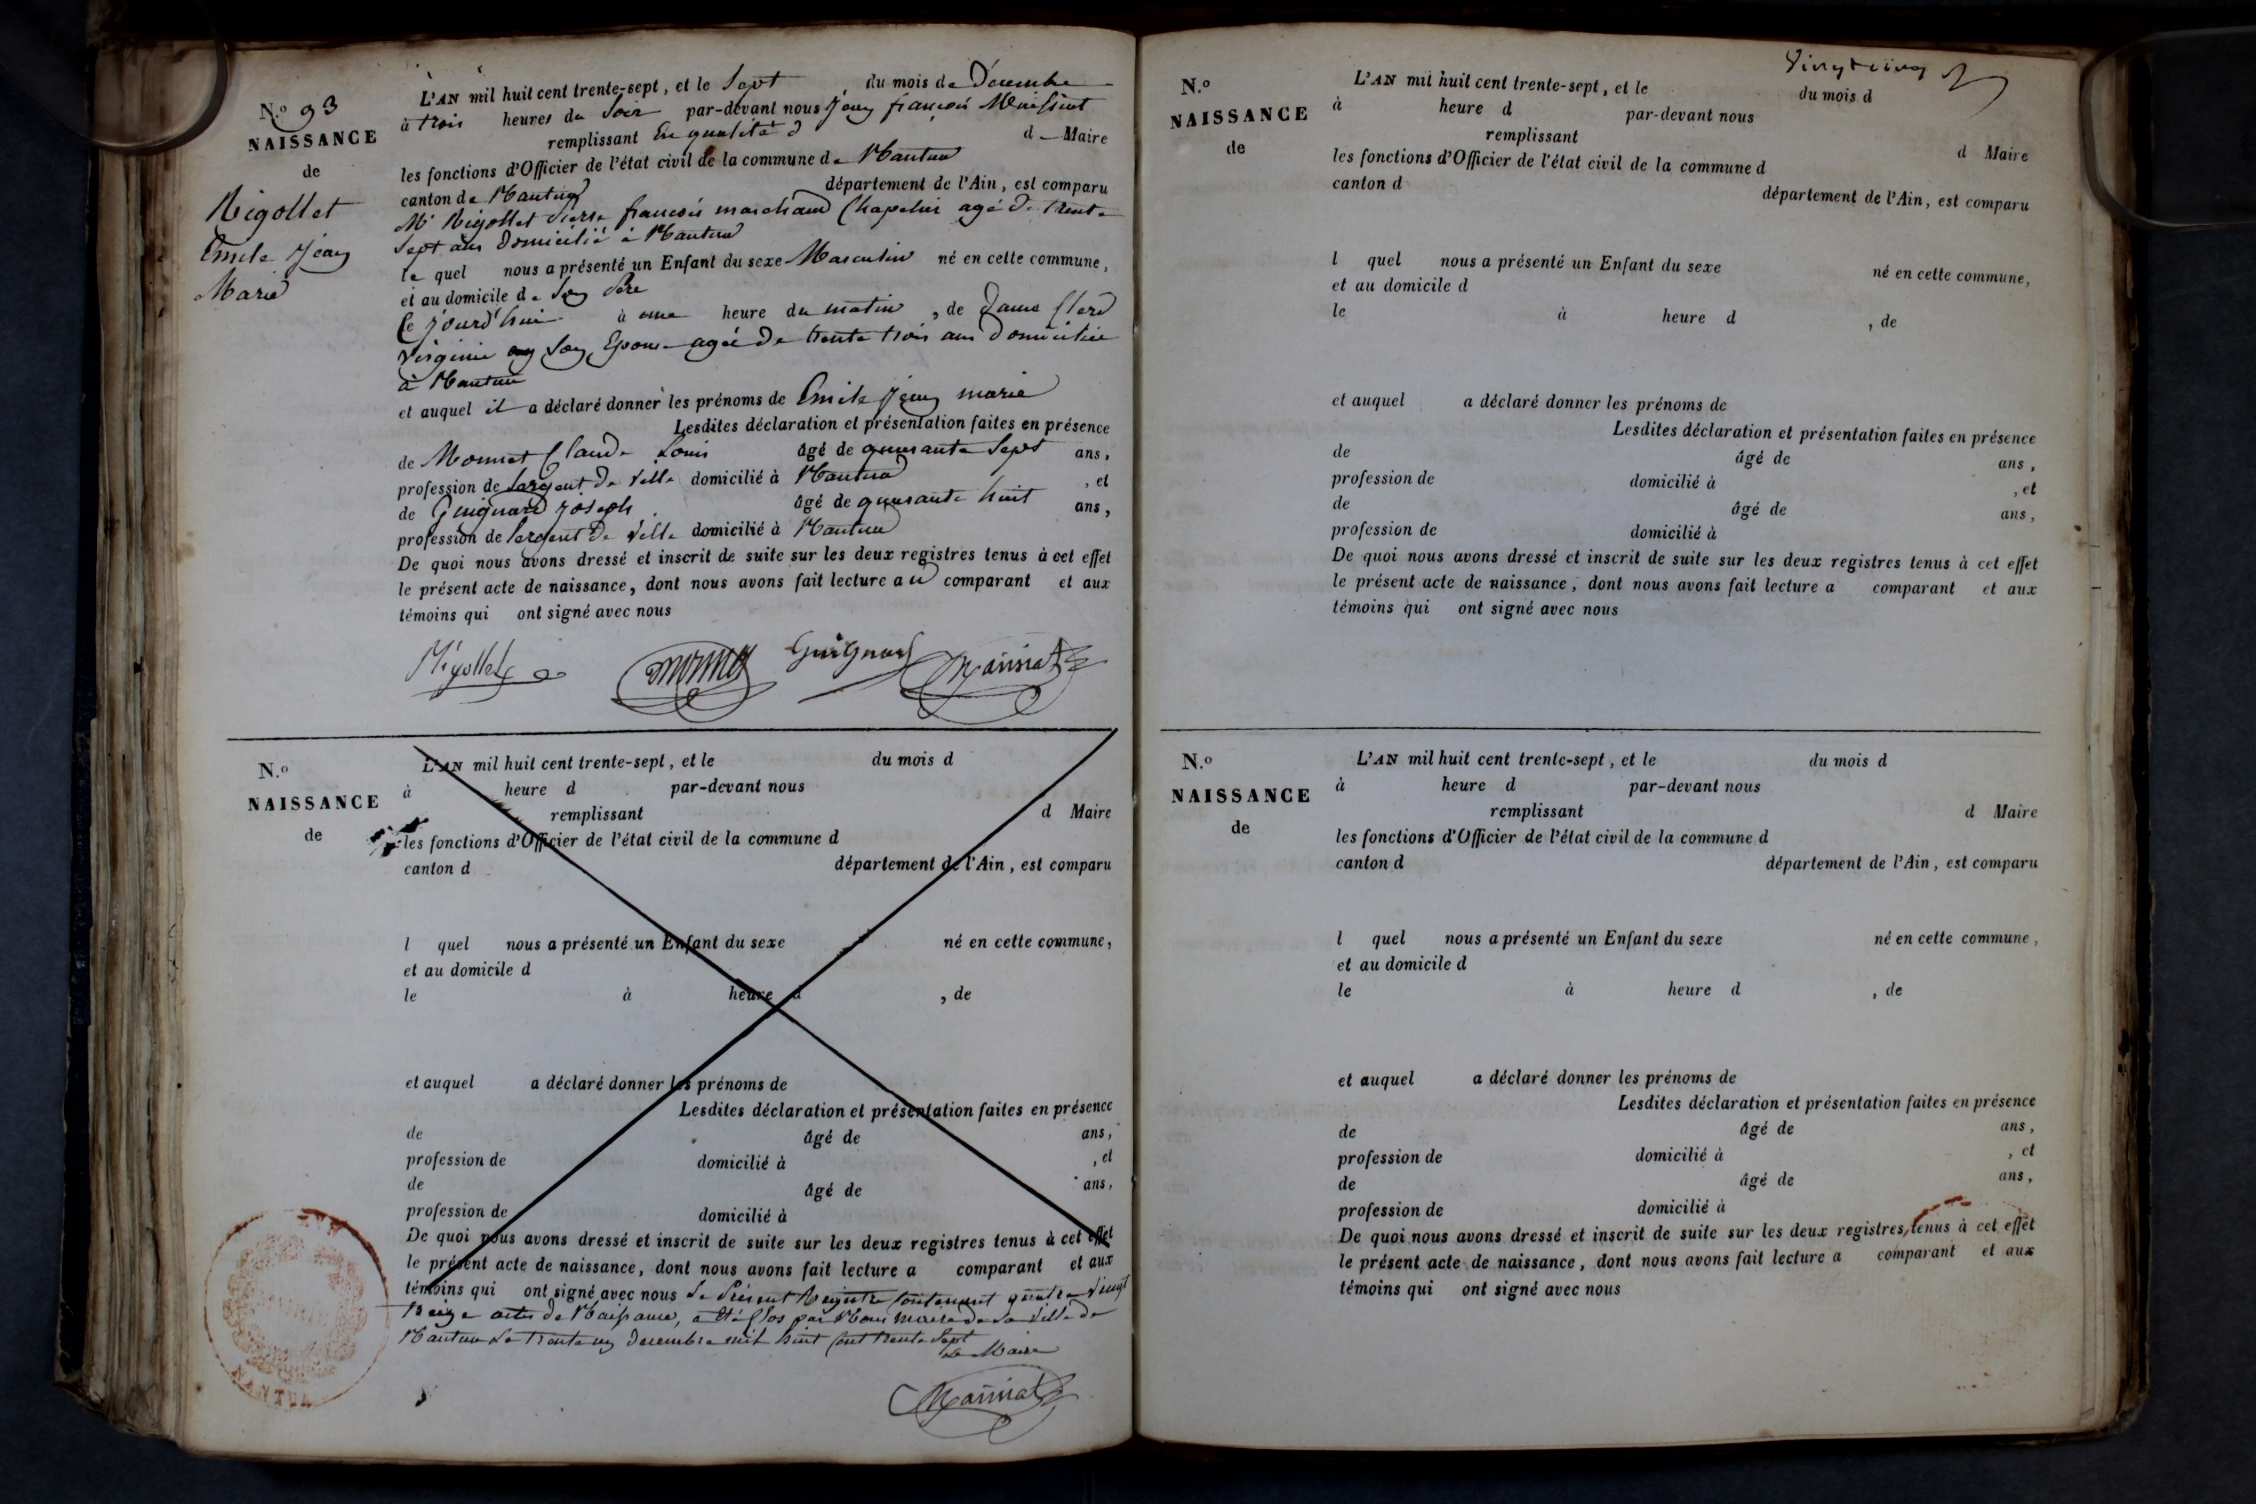 N.o 93
NAISSANCE
de
Rigollet
Emile Jean
Marie
L'AN mil huit cent trente-sept, et le Sept du mois de Décembre
à trois heures du Soir par-devant nous Jean françois
remplissant En qualité d Maire
les fonctions d'Officier de l'état civil de la commune de Nantua
canton de Nantua département de l'Ain, est comparu
Mr Rigollet Pierre françois marchand Chapelier agé de trente
Sept ans Domicilié à Nantua
le quel nous a présenté un Enfant du sexe Masculin né en cette commune,
et au domicile de Son Père
Ce jourd'hui à heure du matin , de Dame Clerc
Virginie Son Epouse agée de trente trois ans Domiciliée
à Nantua
et auquel il a déclaré donner les prénoms de Emile Jean marie
Lesdites déclaration et présentation faites en présence
de Monnet Claude Louis âgé de quarante Sept ans,
profession de Sergent de Ville domicilié à Nantua , et
de Guignard Joseph âgé de quarante huit ans,
profession de Sergent de Ville domicilié à Nantua
De quoi nous avons dressé et inscrit de suite sur les deux registres tenus à cet effet
le présent acte de naissance, dont nous avons fait lecture au comparant et aux
témoins qui ont signé avec nous
Rigollet Monnet Guignard
N.o
NAISSANCE
de
L'AN mil huit cent trente-sept, et le du mois d
à heure d par-devant nous
remplissant d Maire
les fonctions d'Officier de l'état civil de la commune d
canton d département de l'Ain, est comparu
l quel nous a présenté un Enfant du sexe né en cette commune,
et au domicile d
le à heure d , de
et auquel a déclaré donner les prénoms de
Lesdites déclaration et présentation faites en présence
de âgé de ans,
profession de domicilié à , et
de âgé de ans,
profession de domicilié à
De quoi nous avons dressé et inscrit de suite sur les deux registres tenus à cet effet
le présent acte de naissance, dont nous avons fait lecture a comparant et aux
témoins qui ont signé avec nous Le Présent Registre Contenant quatre Vingt
treize actes de Naissance, a été Clos par Nous maire de la Ville de
Nantua Le trente un decembre mil huit Cent trente Sept
Le Maire
NANTUA
Vingt cinq
N.o
NAISSANCE
de
L'AN mil huit cent trente-sept, et le du mois d
à heure d par-devant nous
remplissant d Maire
les fonctions d'Officier de l'état civil de la commune d
canton d département de l'Ain, est comparu
l quel nous a présenté un Enfant du sexe né en cette commune,
et au domicile d
le à heure d , de
et auquel a déclaré donner les prénoms de
Lesdites déclaration et présentation faites en présence
de âgé de ans,
profession de domicilié à , et
de âgé de ans,
profession de domicilié à
De quoi nous avons dressé et inscrit de suite sur les deux registres tenus à cet effet
le présent acte de naissance, dont nous avons fait lecture a comparant et aux
témoins qui ont signé avec nous
N.o
NAISSANCE
de
L'AN mil huit cent trente-sept, et le du mois d
à heure d par-devant nous
remplissant d Maire
les fonctions d'Officier de l'état civil de la commune d
canton d département de l'Ain, est comparu
l quel nous a présenté un Enfant du sexe né en cette commune,
et au domicile d
le à heure d , de
et auquel a déclaré donner les prénoms de
Lesdites déclaration et présentation faites en présence
de âgé de ans,
profession de domicilié à , et
de âgé de ans,
profession de domicilié à
De quoi nous avons dressé et inscrit de suite sur les deux registres tenus à cet effet
le présent acte de naissance, dont nous avons fait lecture a comparant et aux
témoins qui ont signé avec nous